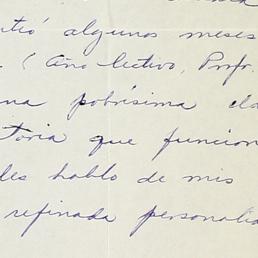 ntió algunos meses
. (Año lectivo, Profr.
na pobrísima cla
toria que funcion
les hablo de mis
refinada personalid